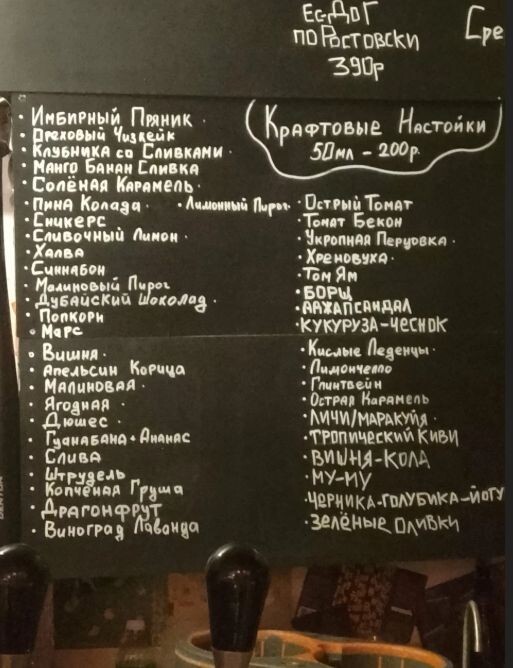 Ес-Дог
по Ростовски
390р
Крафтовые Настойки
50мл - 200р.
• Имбирный Пряник •
• Ореховый Чизкейк
• Клубника со Сливками •
• Манго Банан Сливка
• Солёная Карамель •
• Пина Колада • • Лимонный Пирог •
• Сникерс
• Сливочный Лимон •
• Халва
• Синнабон
• Малиновый Пирог
• Дубайский Шоколад •
• Попкорн
• Марс
• Вишня •
• Апельсин Корица
• Малиновая •
• Ягодная
• Дюшес •
• Гуанабана + Ананас
• Слива
• Штрудель
• Копчёная Груша
• Драгонфрут
• Виноград Лаванда
• Острый Томат
• Томат Бекон
• Укропная Перцовка •
• Хреновуха •
• Том Ям
• БОРЩ
• ААХАПСАНДАЛ
• КУКУРУЗА-ЧЕСНОК
• Кислые Леденцы •
• Лимончелло
• Глинтвейн
• Острая Карамель
• ЛИЧИ/МАРАКУЙЯ •
• ТРОПИЧЕСКИЙ КИВИ
• ВИШНЯ-КОЛА
• МУ-МУ
• ЧЕРНИКА-ГОЛУБИКА-ЙОГУ
• Зелёные оливки